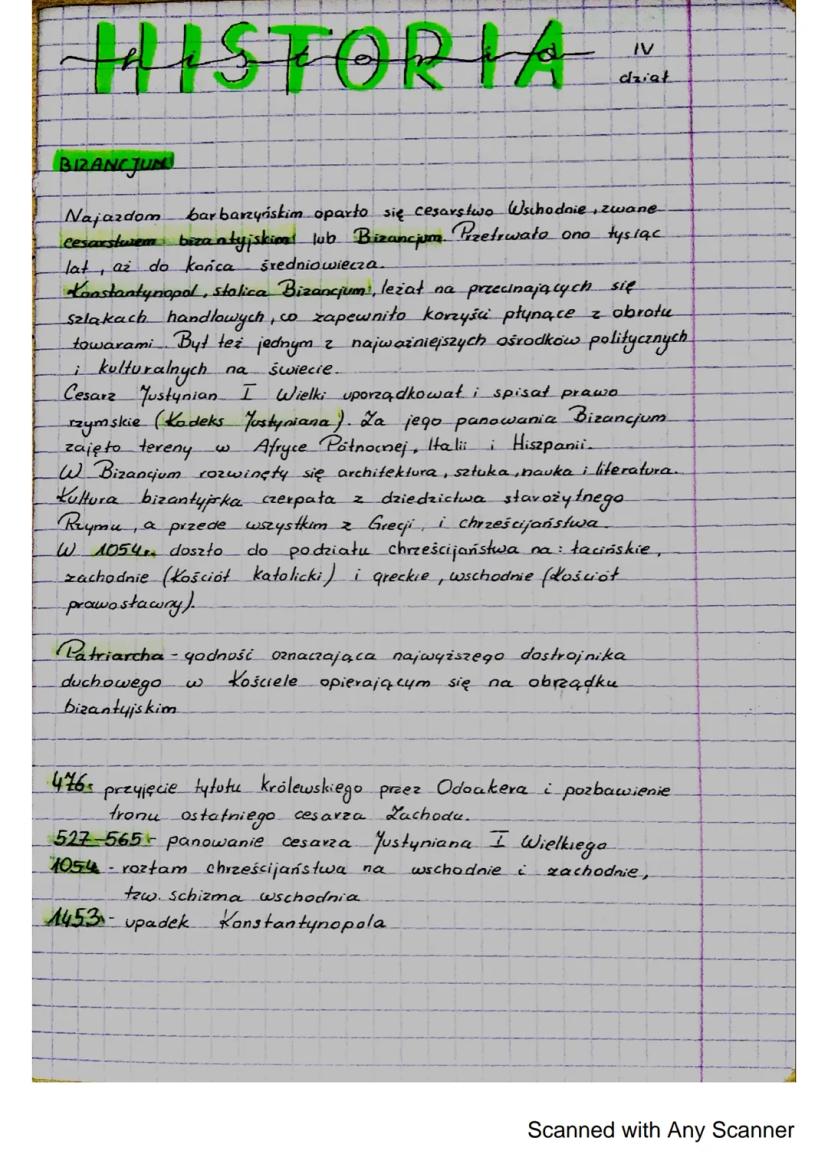 HISTORIA
historia
IV
dział
BIZANCJUM
Najazdom barbarzyńskim oparło się cesarstwo Wschodnie, zwane
cesarstwem bizantyjskim lub Bizancjum. Przetrwało ono tysiąc
lat, aż do końca średniowiecza.
Konstantynopol, stolica Bizancjum, leżał na przecinających się
szlakach handlowych, co zapewniło korzyści płynące z obrotu
towarami. Był też jednym z najważniejszych ośrodków politycznych
i kulturalnych na świecie.
Cesarz Justynian I Wielki uporządkował i spisał prawo
rzymskie (Kodeks Justyniana). Za jego panowania Bizancjum
zajęło tereny w Afryce Północnej, Italii i Hiszpanii.
W Bizancjum rozwinęły się architektura, sztuka, nauka i literatura.
Kultura bizantyjska czerpała z dziedzictwa starożytnego
Rzymu, a przede wszystkim z Grecji, i chrześcijaństwa.
W 1054r. doszło do podziału chrześcijaństwa na: łacińskie,
zachodnie (Kościół katolicki) i greckie, wschodnie (Kościół
prawosławny).
Patriarcha - godność oznaczająca najwyższego dostojnika
duchowego w Kościele opierającym się na obrządku
bizantyjskim
476- przyjęcie tytułu królewskiego przez Odoakera i pozbawienie
tronu ostatniego cesarza Zachodu.
527-565- panowanie cesarza Justyniana I Wielkiego
1054 - rozłam chrześcijaństwa na wschodnie i zachodnie,
tzw. schizma wschodnia
1453- upadek Konstantynopola
Scanned with Any Scanner